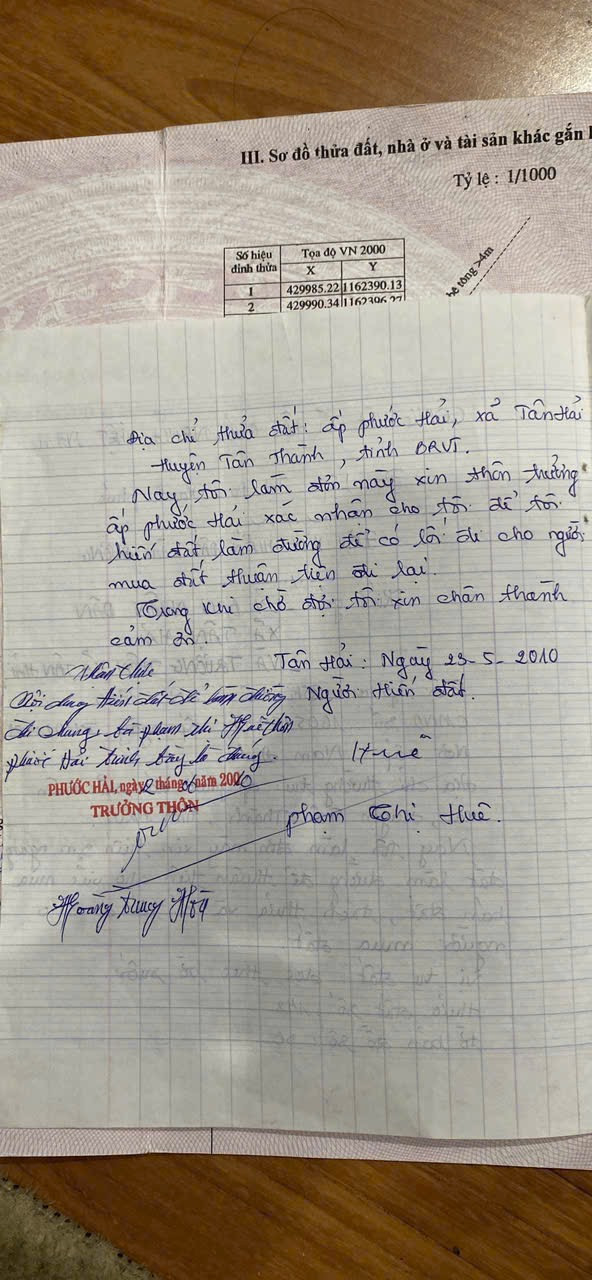 III. Sơ đồ thửa đất, nhà ở và tài sản khác gắn
Tỷ lệ : 1/1000
Số hiệu đỉnh thửa
Tọa độ VN 2000
X Y
1 429985.22 1162390.13
2 429990.34 1162396.27
bê tông >4m
Địa chỉ thửa đất: ấp phước Hải, xả Tân Hải
Huyện Tân Thành, tỉnh BRVT.
Nay tôi làm đơn này xin thôn trưởng
ấp phước Hải xác nhân cho tôi để tôi
hiến đất làm đường để có lối đi cho người
mua đất thuận tiện đi lại.
Trong khi chờ đợi tôi xin chân thành
cảm ơn
Tân Hải: Ngày 23-5-2010
Người Hiến đất.
Huê
phạm Thị Huê.
Nội dung hiến đất để làm đường
đi chung, bà phạm thị Huê thôn
phước Hải trình bày là đúng.
PHƯỚC HẢI, ngày 2 tháng 6 năm 2010
TRƯỞNG THÔN
Hoàng